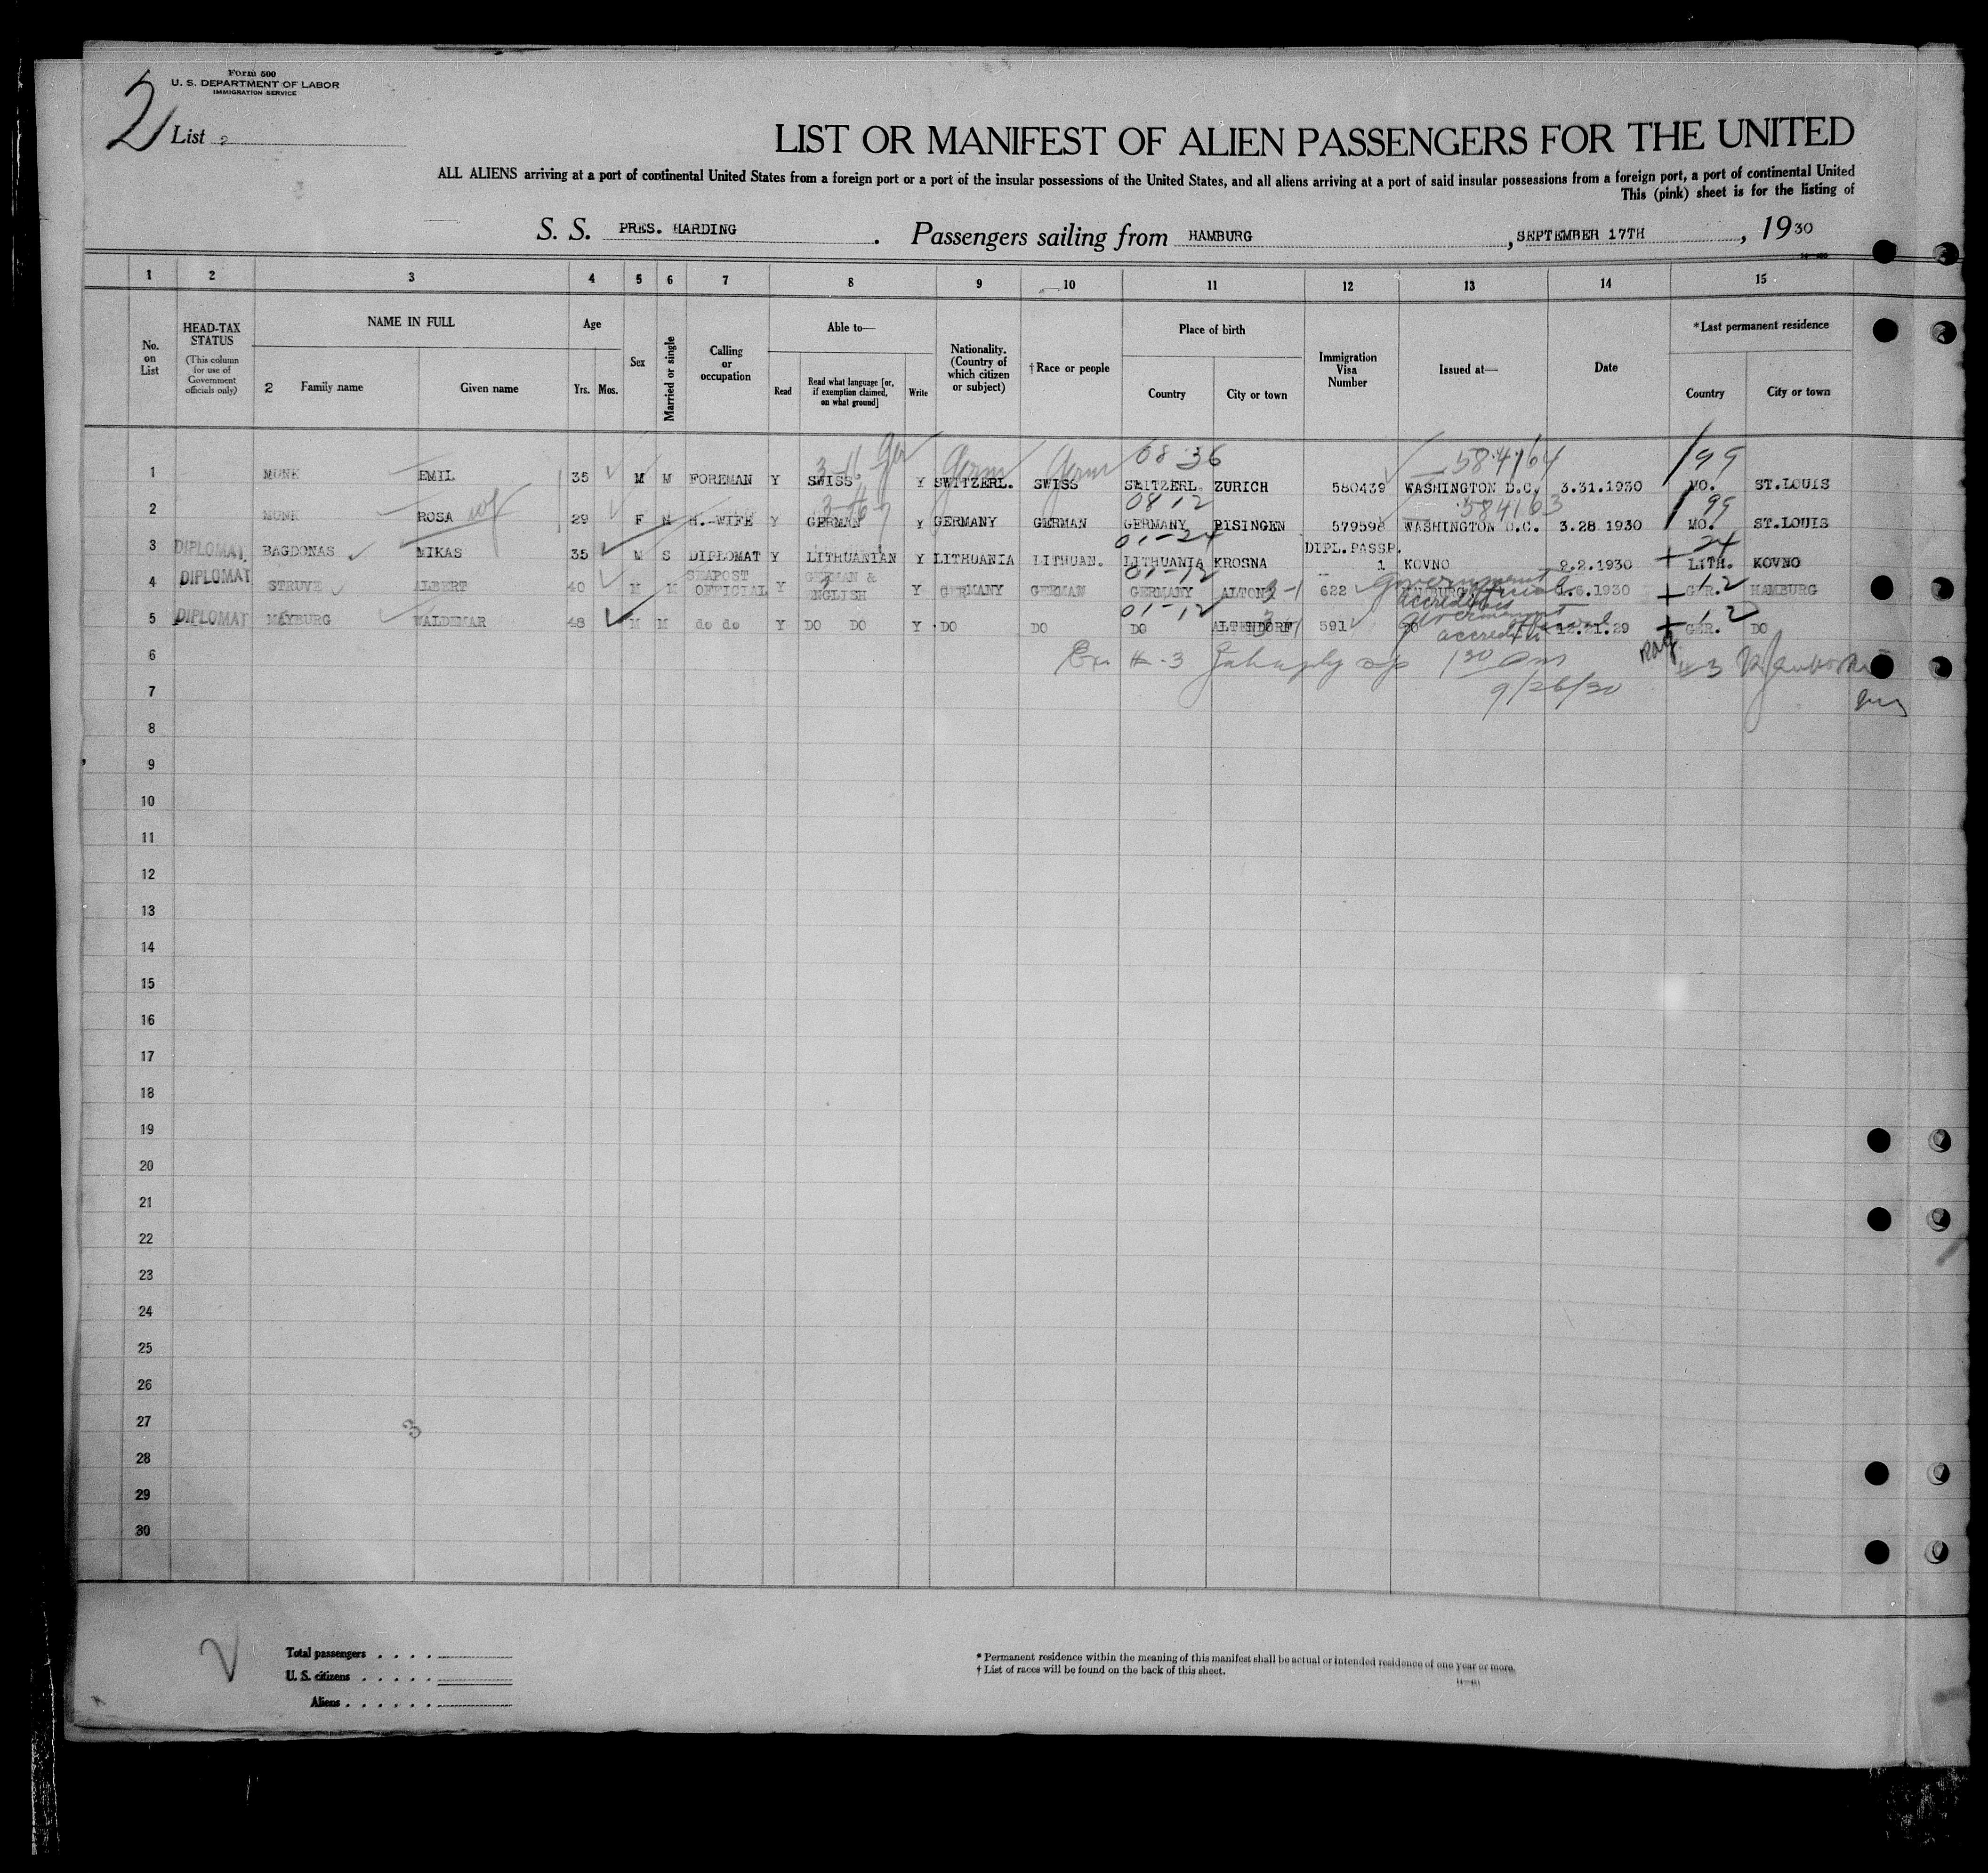 Form 500
U. S. DEPARTMENT OF LABOR
IMMIGRATION SERVICE
2
List 2
LIST OR MANIFEST OF ALIEN PASSENGERS FOR THE UNITED
ALL ALIENS arriving at a port of continental United States from a foreign port or a port of the insular possessions of the United States, and all aliens arriving at a port of said insular possessions from a foreign port, a port of continental United
This (pink) sheet is for the listing of
S. S. PRES. HARDING. Passengers sailing from HAMBURG, SEPTEMBER 17TH, 1930
1 2 3 4 5 6 7 8 9 10 11 12 13 14 15
No. on List
HEAD-TAX STATUS
(This column for use of Government officials only)
NAME IN FULL
2 Family name Given name
Age
Yrs. Mos.
Sex
Married or single
Calling or occupation
Able to—
Read
Read what language [or, if exemption claimed, on what ground]
Write
Nationality. (Country of which citizen or subject)
†Race or people
Place of birth
Country City or town
Immigration Visa Number
Issued at—
Date
*Last permanent residence
Country City or town
3-16 Ger Germ Germ 08 36 584164 199
1 MUNK EMIL 35 M M FOREMAN Y SWISS Y SWITZERL. SWISS SWITZERL. ZURICH 580439 WASHINGTON D.C. 3.31.1930 MO. ST.LOUIS
wf 08 12 584163 199
2 MUNK ROSA 29 F M H.-WIFE Y GERMAN Y GERMANY GERMAN GERMANY BISINGEN 579598 WASHINGTON D.C. 3.28.1930 MO. ST.LOUIS
01-24 DIPL.PASSP. 24
3 DIPLOMAT BAGDONAS MIKAS 35 M S DIPLOMAT Y LITHUANIAN Y LITHUANIA LITHUAN. LITHUANIA KROSNA 1 KOVNO 2.2.1930 LITH. KOVNO
01-12 Government official accredited 12
4 DIPLOMAT STRUVE ALBERT 40 M M SEAPOST OFFICIAL Y GERMAN & ENGLISH Y GERMANY GERMAN GERMANY ALTONA 622 HAMBURG 1.6.1930 GER. HAMBURG
01-12 Government official accredited 12
5 DIPLOMAT MAYBURG WALDEMAR 48 M M do do Y DO DO Y DO DO DO ALTENDORF 591 DO 12.21.29 GER. DO
6 Ex # 3 1 30 9/26/30
7
8
9
10
11
12
13
14
15
16
17
18
19
20
21
22
23
24
25
26
27
3
28
29
30
Total passengers
U. S. citizens
Aliens
* Permanent residence within the meaning of this manifest shall be actual or intended residence of one year or more.
† List of races will be found on the back of this sheet.